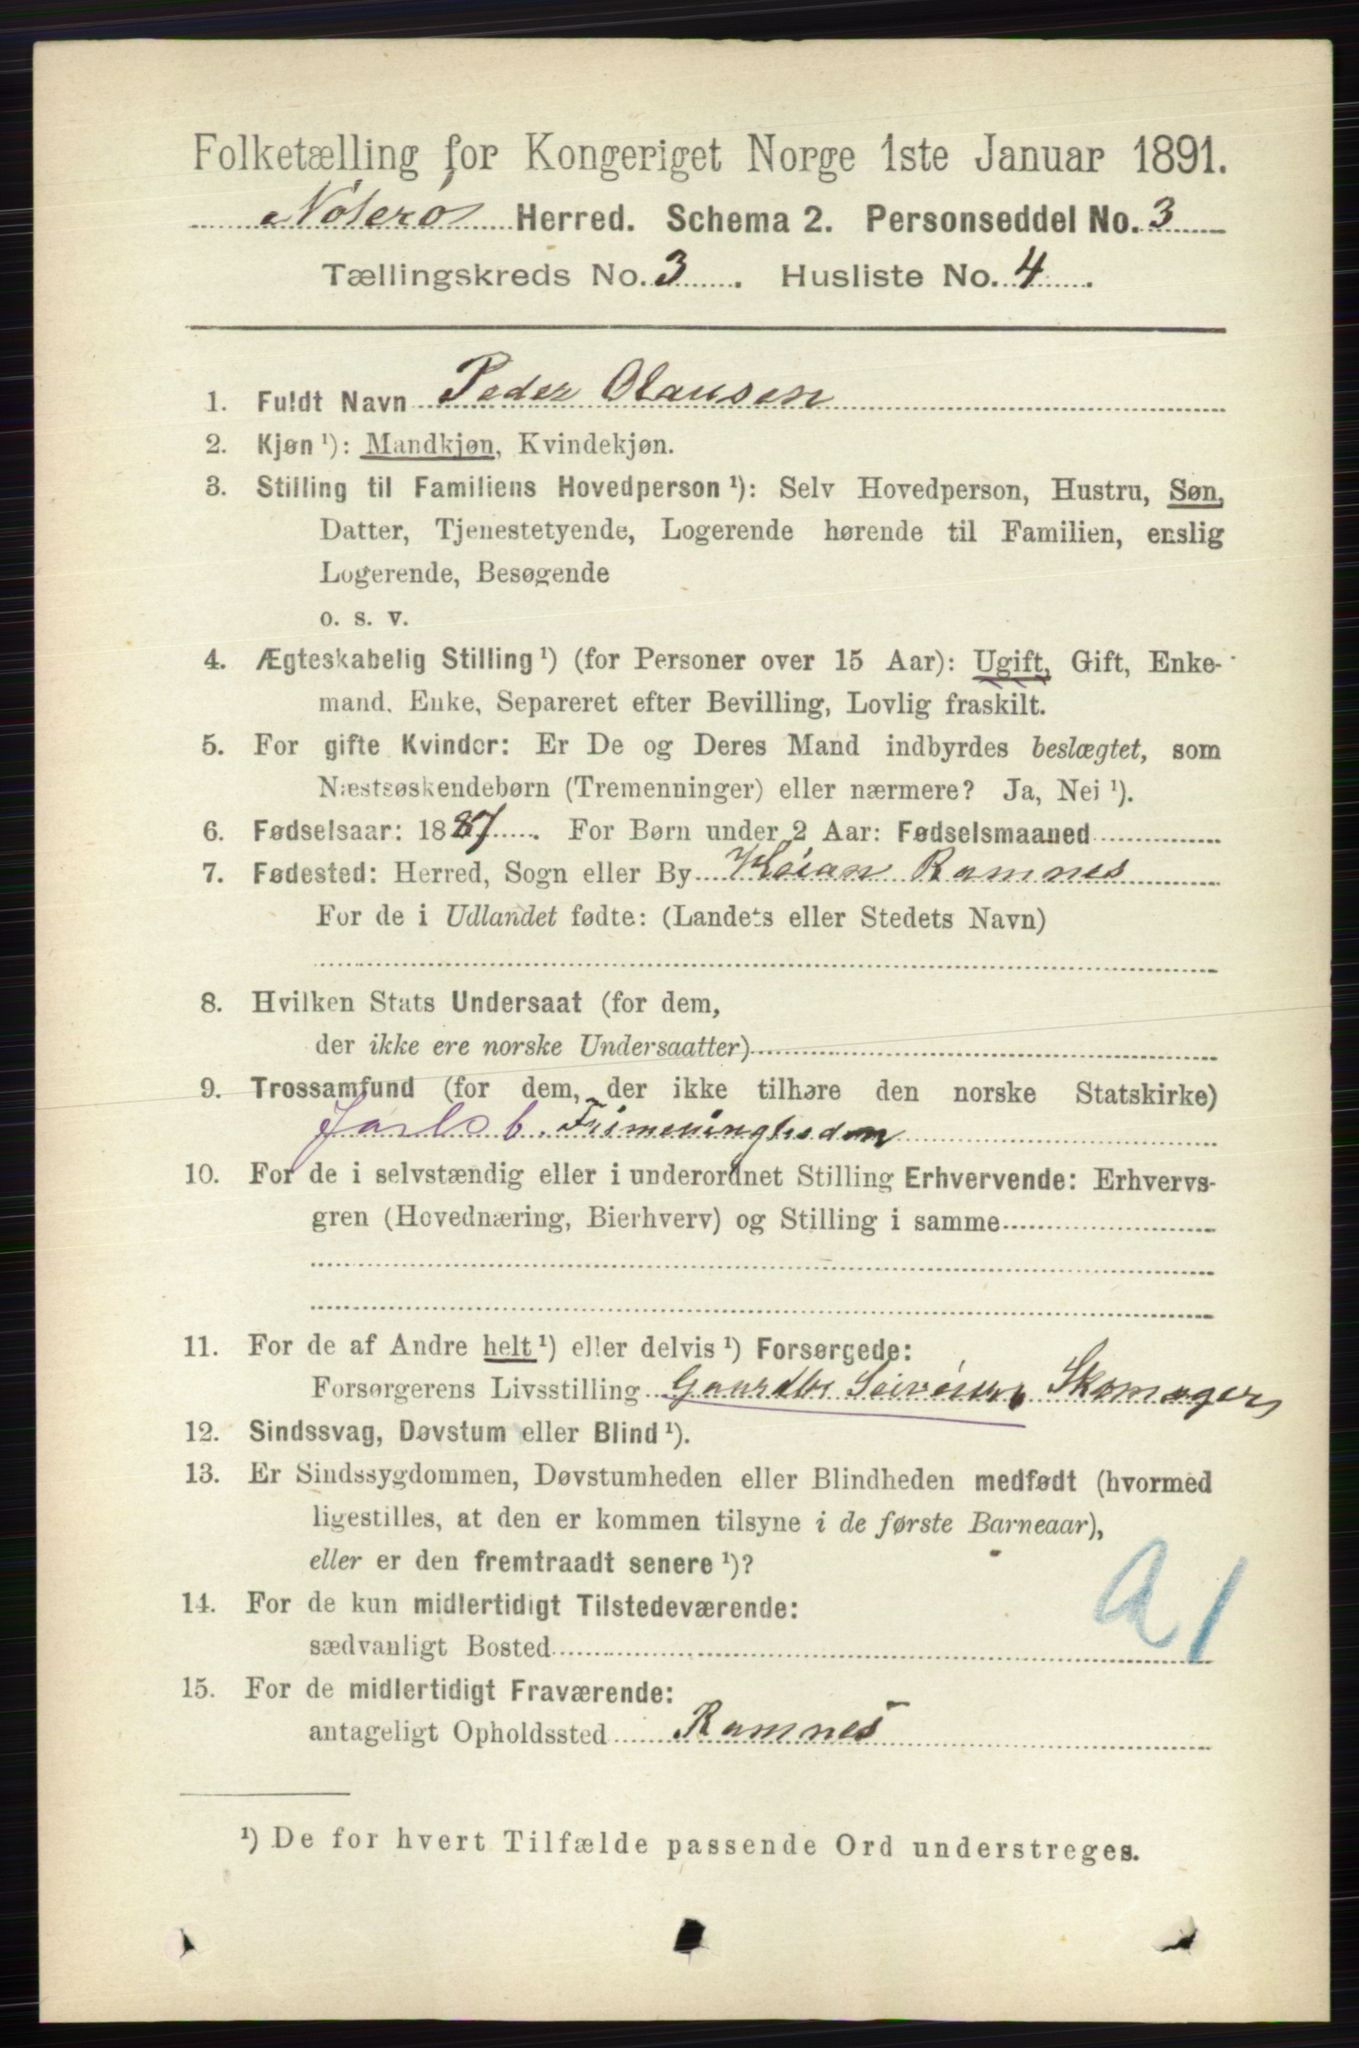 Folketælling for Kongeriget Norge 1ste Januar 1891.
Nøterø Herred. Schema 2. Personseddel No. 3
Tællingskreds No. 3. Husliste No. 4.
1. Fuldt Navn Peder Olausen
2. Kjøn ¹): Mandkjøn, Kvindekjøn.
3. Stilling til Familiens Hovedperson ¹): Selv Hovedperson, Hustru, Søn,
Datter, Tjenestetyende, Logerende hørende til Familien, enslig
Logerende, Besøgende
o. s. v.
4. Ægteskabelig Stilling ¹) (for Personer over 15 Aar): Ugift, Gift, Enke-
mand, Enke, Separeret efter Bevilling, Lovlig fraskilt.
5. For gifte Kvinder: Er De og Deres Mand indbyrdes beslægtet, som
Næstsøskendebørn (Tremenninger) eller nærmere? Ja, Nei ¹).
6. Fødselsaar: 1887. For Børn under 2 Aar: Fødselsmaaned
7. Fødested: Herred, Sogn eller By Høian Ramnes
For de i Udlandet fødte: (Landets eller Stedets Navn)
8. Hvilken Stats Undersaat (for dem,
der ikke ere norske Undersaatter)
9. Trossamfund (for dem, der ikke tilhøre den norske Statskirke)
Jarlsb. Frimenigheden
10. For de i selvstændig eller i underordnet Stilling Erhvervende: Erhvervs-
gren (Hovednæring, Bierhverv) og Stilling i samme
11. For de af Andre helt ¹) eller delvis ¹) Forsørgede:
Forsørgerens Livsstilling Skomager
12. Sindssvag, Døvstum eller Blind ¹).
13. Er Sindssygdommen, Døvstumheden eller Blindheden medfødt (hvormed
ligestilles, at den er kommen tilsyne i de første Barneaar),
eller er den fremtraadt senere ¹)?
14. For de kun midlertidigt Tilstedeværende:
sædvanligt Bosted
A 1
15. For de midlertidigt Fraværende:
antageligt Opholdssted Ramnes
¹) De for hvert Tilfælde passende Ord understreges.